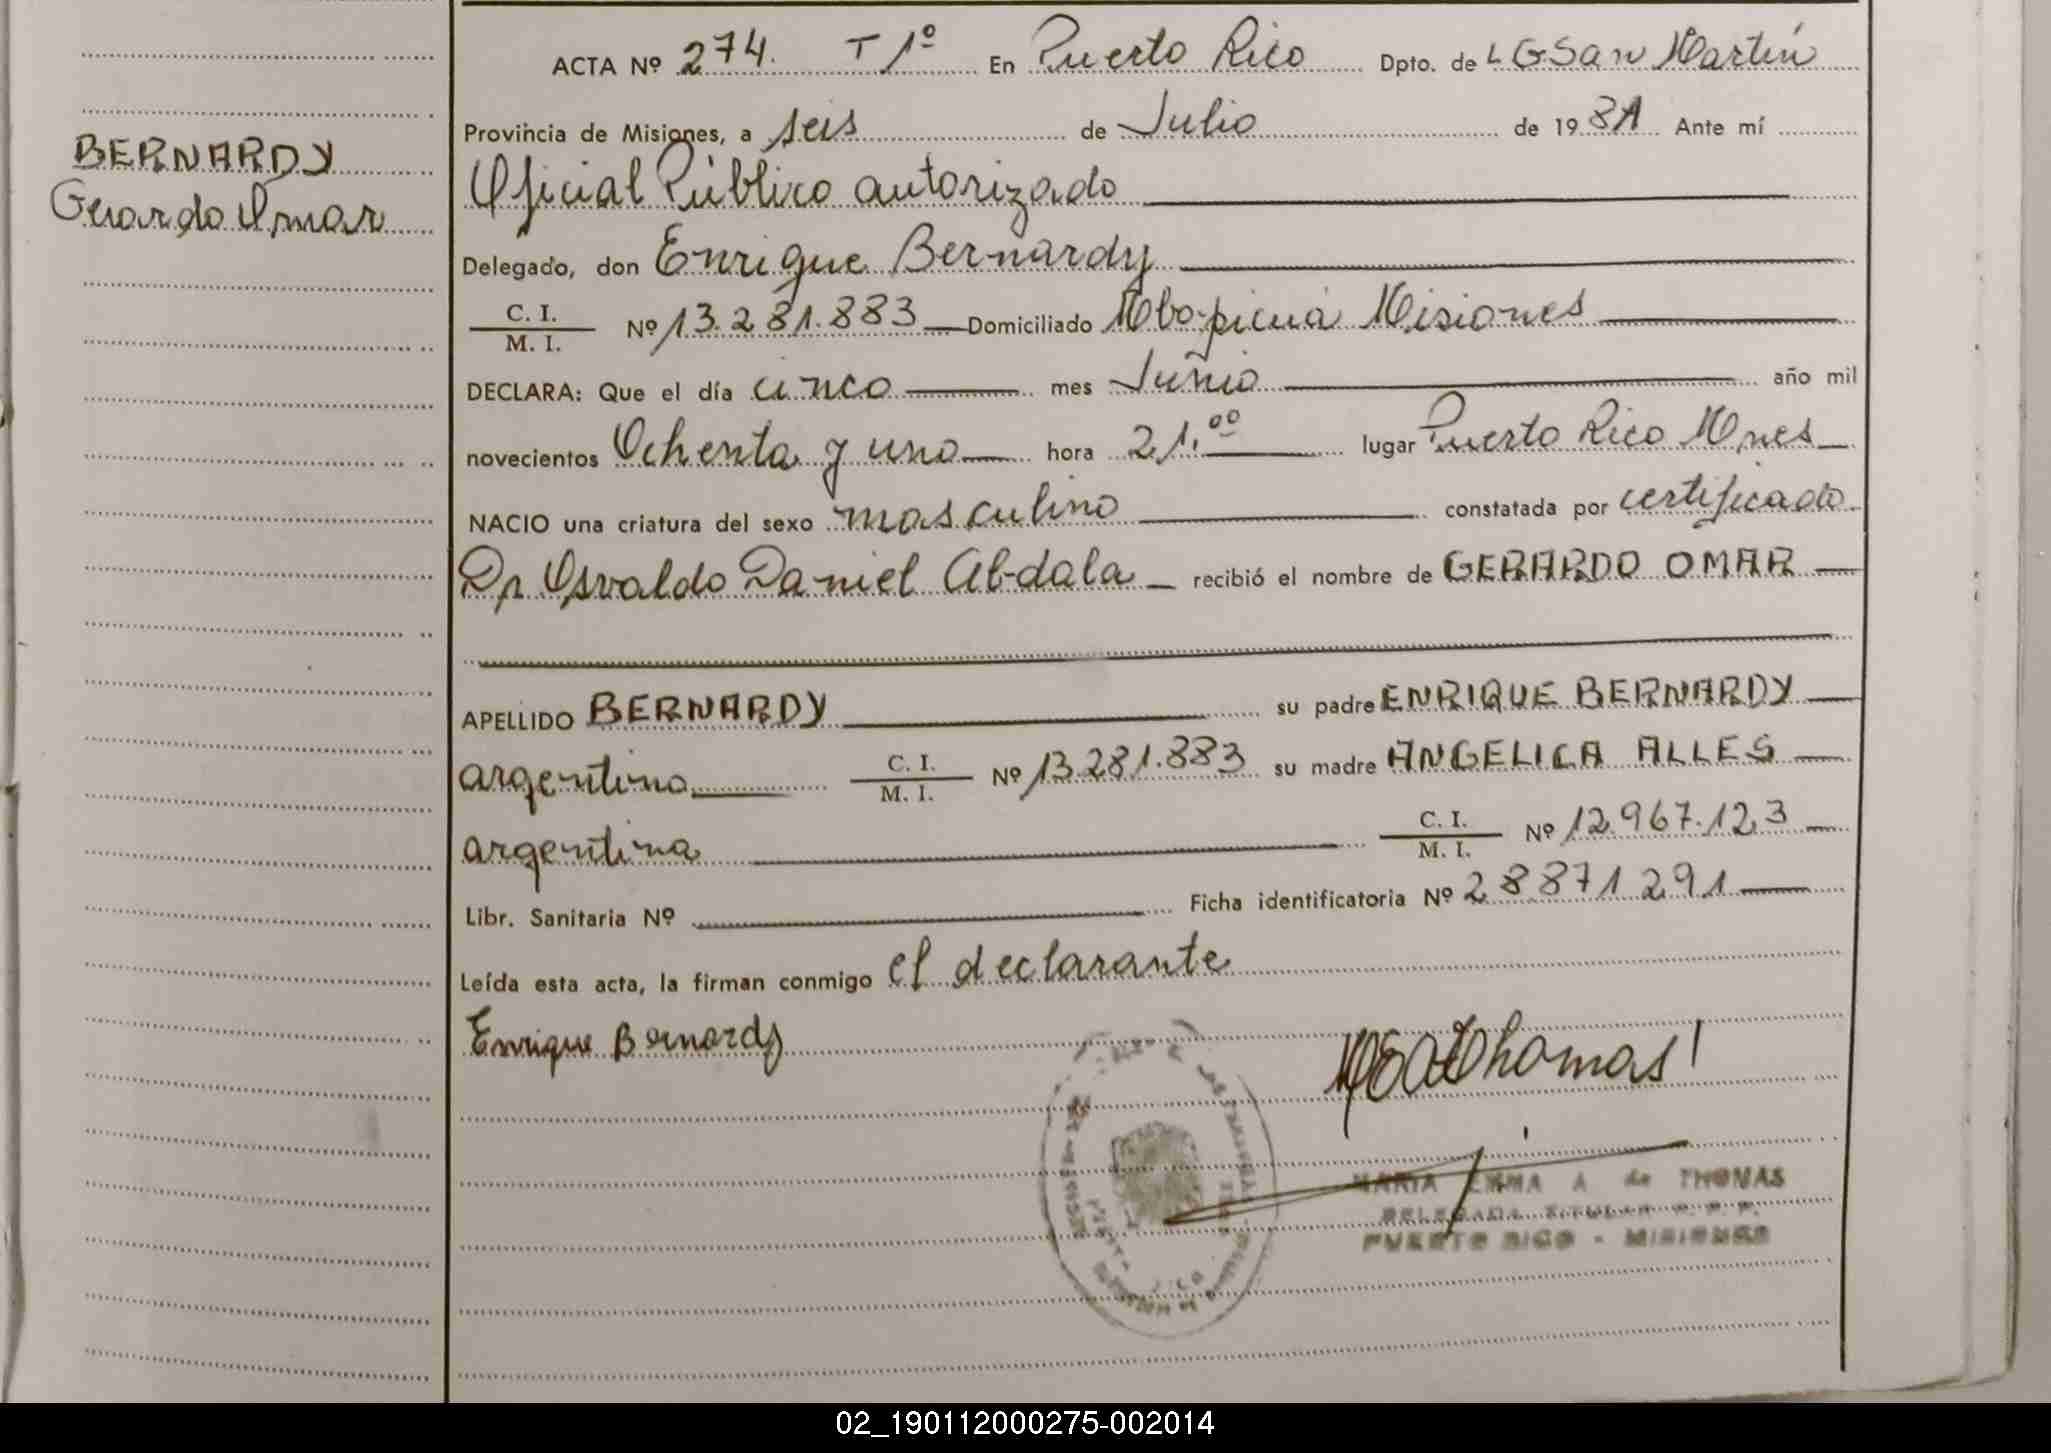 BERNARDY
Gerardo Omar
ACTA Nº 274. T 1º En Puerto Rico Dpto. de L G San Martín
Provincia de Misiones, a seis de Julio de 1981 Ante mí
Oficial Público autorizado
Delegado, don Enrique Bernardy
C. I. / M. I. Nº 13.281.883 Domiciliado Mbo-picuá Misiones
DECLARA: Que el día cinco mes Junio año mil
novecientos Ochenta y uno hora 21.00 lugar Puerto Rico Mnes
NACIO una criatura del sexo masculino constatada por certificado
Dr Osvaldo Daniel Abdala recibió el nombre de GERARDO OMAR
APELLIDO BERNARDY su padre ENRIQUE BERNARDY
argentino C. I. / M. I. Nº 13.281.883 su madre ANGELICA ALLES
argentina C. I. / M. I. Nº 12.967.123
Libr. Sanitaria Nº Ficha identificatoria Nº 28871291
Leída esta acta, la firman conmigo el declarante
Enrique Bernardy
Thomas
MARIA EMMA A de THOMAS
DELEGADA TITULAR R. P. P.
PUERTO RICO - MISIONES
02_190112000275-002014